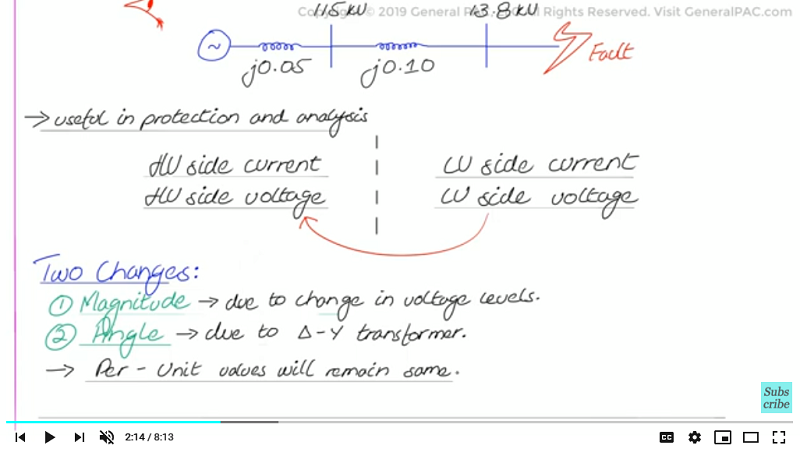 Copyright © 2019 General PAC. All Rights Reserved. Visit GeneralPAC.com
115kV
13.8kV
~
j0.05
j0.10
Fault
→ useful in protection and analysis
HV side current
LV side current
HV side voltage
LV side voltage
Two Changes:
① Magnitude → due to change in voltage levels.
② Angle → due to Δ-Y transformer.
→ Per-Unit values will remain same.
Subs
cribe
2:14 / 8:13
CC